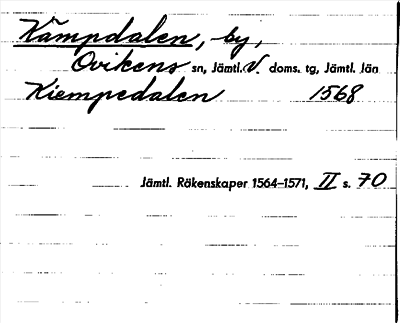 Kämpdalen, by,
Ovikens sn, Jämtl. V. doms. tg, Jämtl. län
Kiempedalen 1568
Jämtl. Räkenskaper 1564–1571, II s. 70